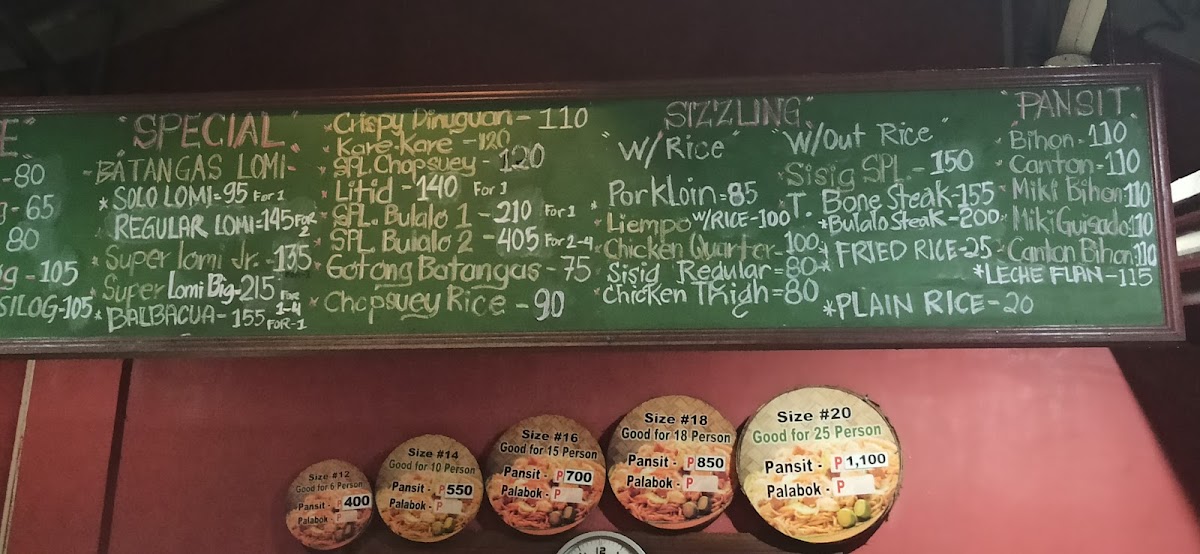 E"
-80
g-65
80
g-105
SILOG-105
"SPECIAL"
-BATANGAS LOMI-
* SOLO LOMI=95 For 1
REGULAR LOMI=145 FOR 2
* Super lomi Jr. - 135
* Super Lomi Big-215 For 1-4
* BALBACUA-155 FOR-1
* Crispy Dinuguan-110
* Kare-Kare-120
* SPL Chopsuey-120
* Litid-140 For 1
* SPL. Bulalo 1-210 For 1
* SPL Bulalo 2-405 For 2-4
* Gotong Batangas-75
* Chopsuey Rice-90
"SIZZLING"
"W/Rice"
* Porkloin=85
* Liempo w/RICE-100
* Chicken Quarter-100
* Sisig Regular=80
* Chicken Thigh=80
"W/Out Rice"
* Sisig SPL.-150
* T. Bone Steak-155
* Bulalo Steak-200
* FRIED RICE-25
* PLAIN RICE-20
"PANSIT"
* Bihon-110
* Canton-110
* Miki Bihon 110
* Miki Guisado 110
* Canton Bihon-110
* LECHE FLAN-115
Size #12
Good for 6 Person
Pansit - P 400
Palabok - P
Size #14
Good for 10 Person
Pansit - P 550
Palabok - P
Size #16
Good for 15 Person
Pansit - P 700
Palabok - P
Size #18
Good for 18 Person
Pansit - P 850
Palabok - P
Size #20
Good for 25 Person
Pansit - P 1,100
Palabok - P
12